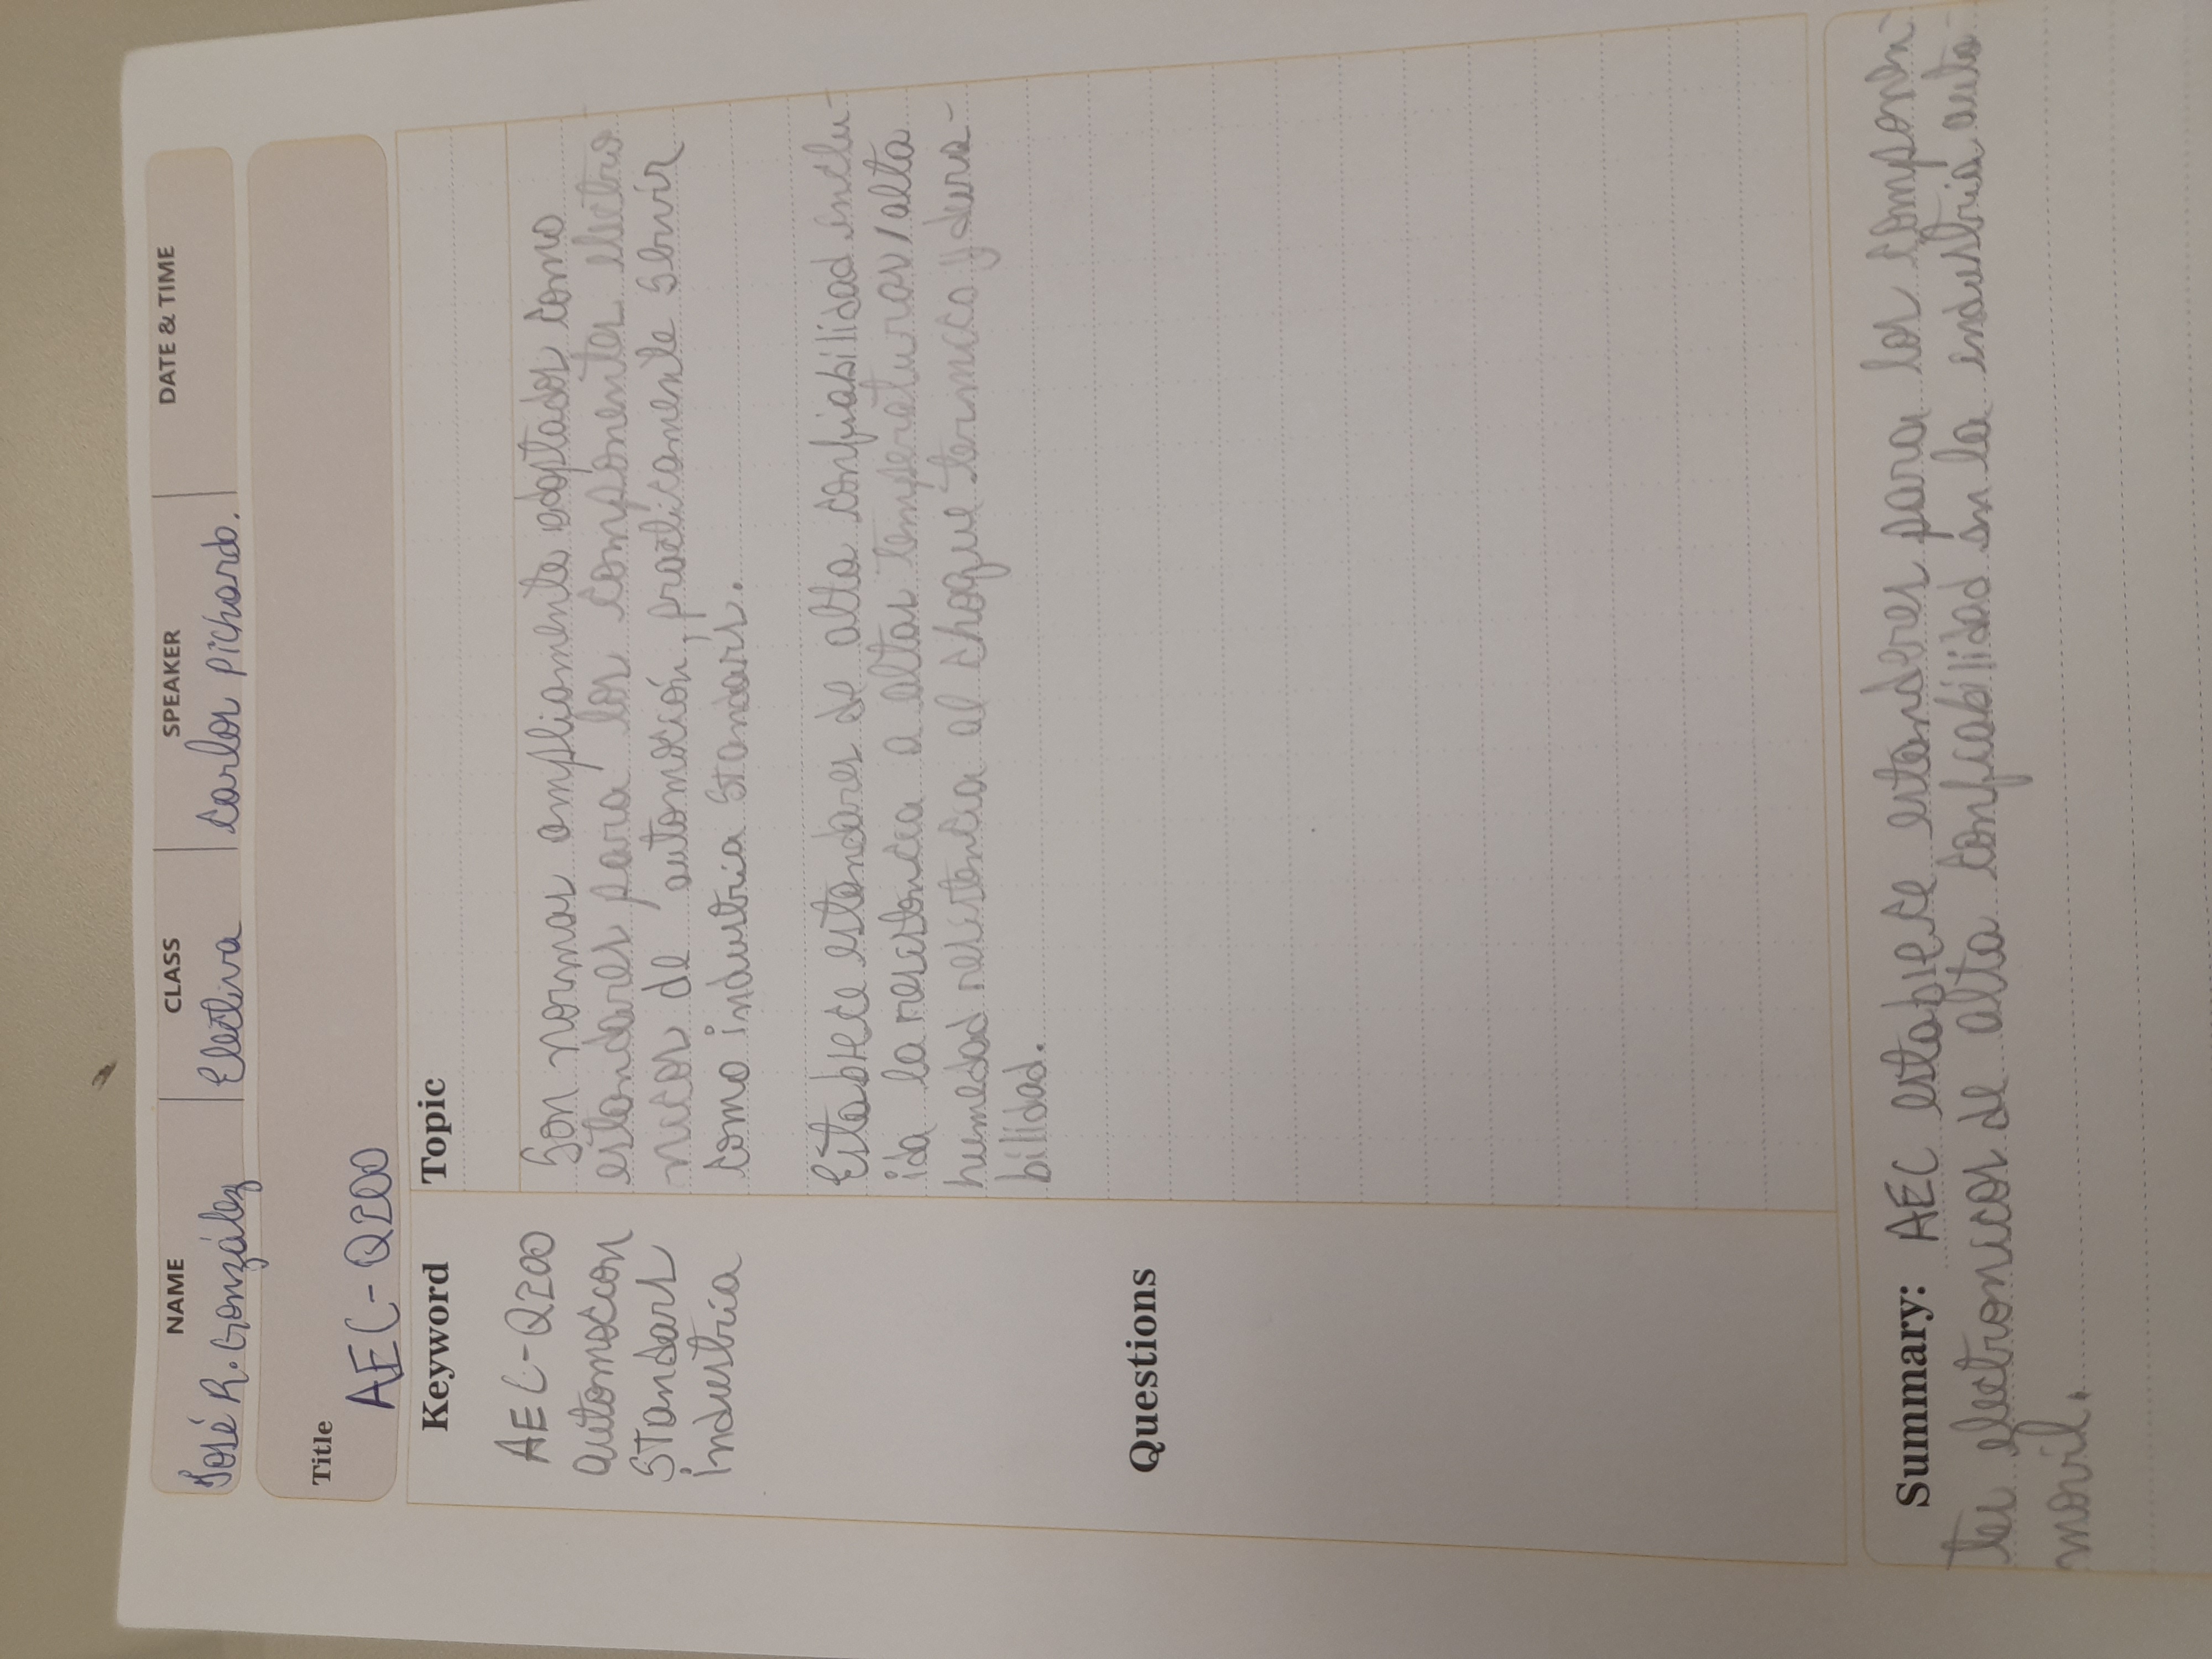 NAME CLASS SPEAKER DATE & TIME
José R. González Electiva Carlos Pichardo.
Title
AEC-Q200
Keyword Topic
AEC-Q200
automocion
Standars
industria
Son normas ampliamente adoptados como
estandares para los componentes electro
nicos de automoción, practicamente servir
como industria Standars.
Establece estandares de alta confiabilidad inclu-
ida la resistencia a altas temperaturas/alta
humedad resistencia al choque termico y dura-
bilidad.
Questions
Summary: AEC establece estanderes para los componen-
tes electronicos de alta confiabilidad en la industria auto-
movil.